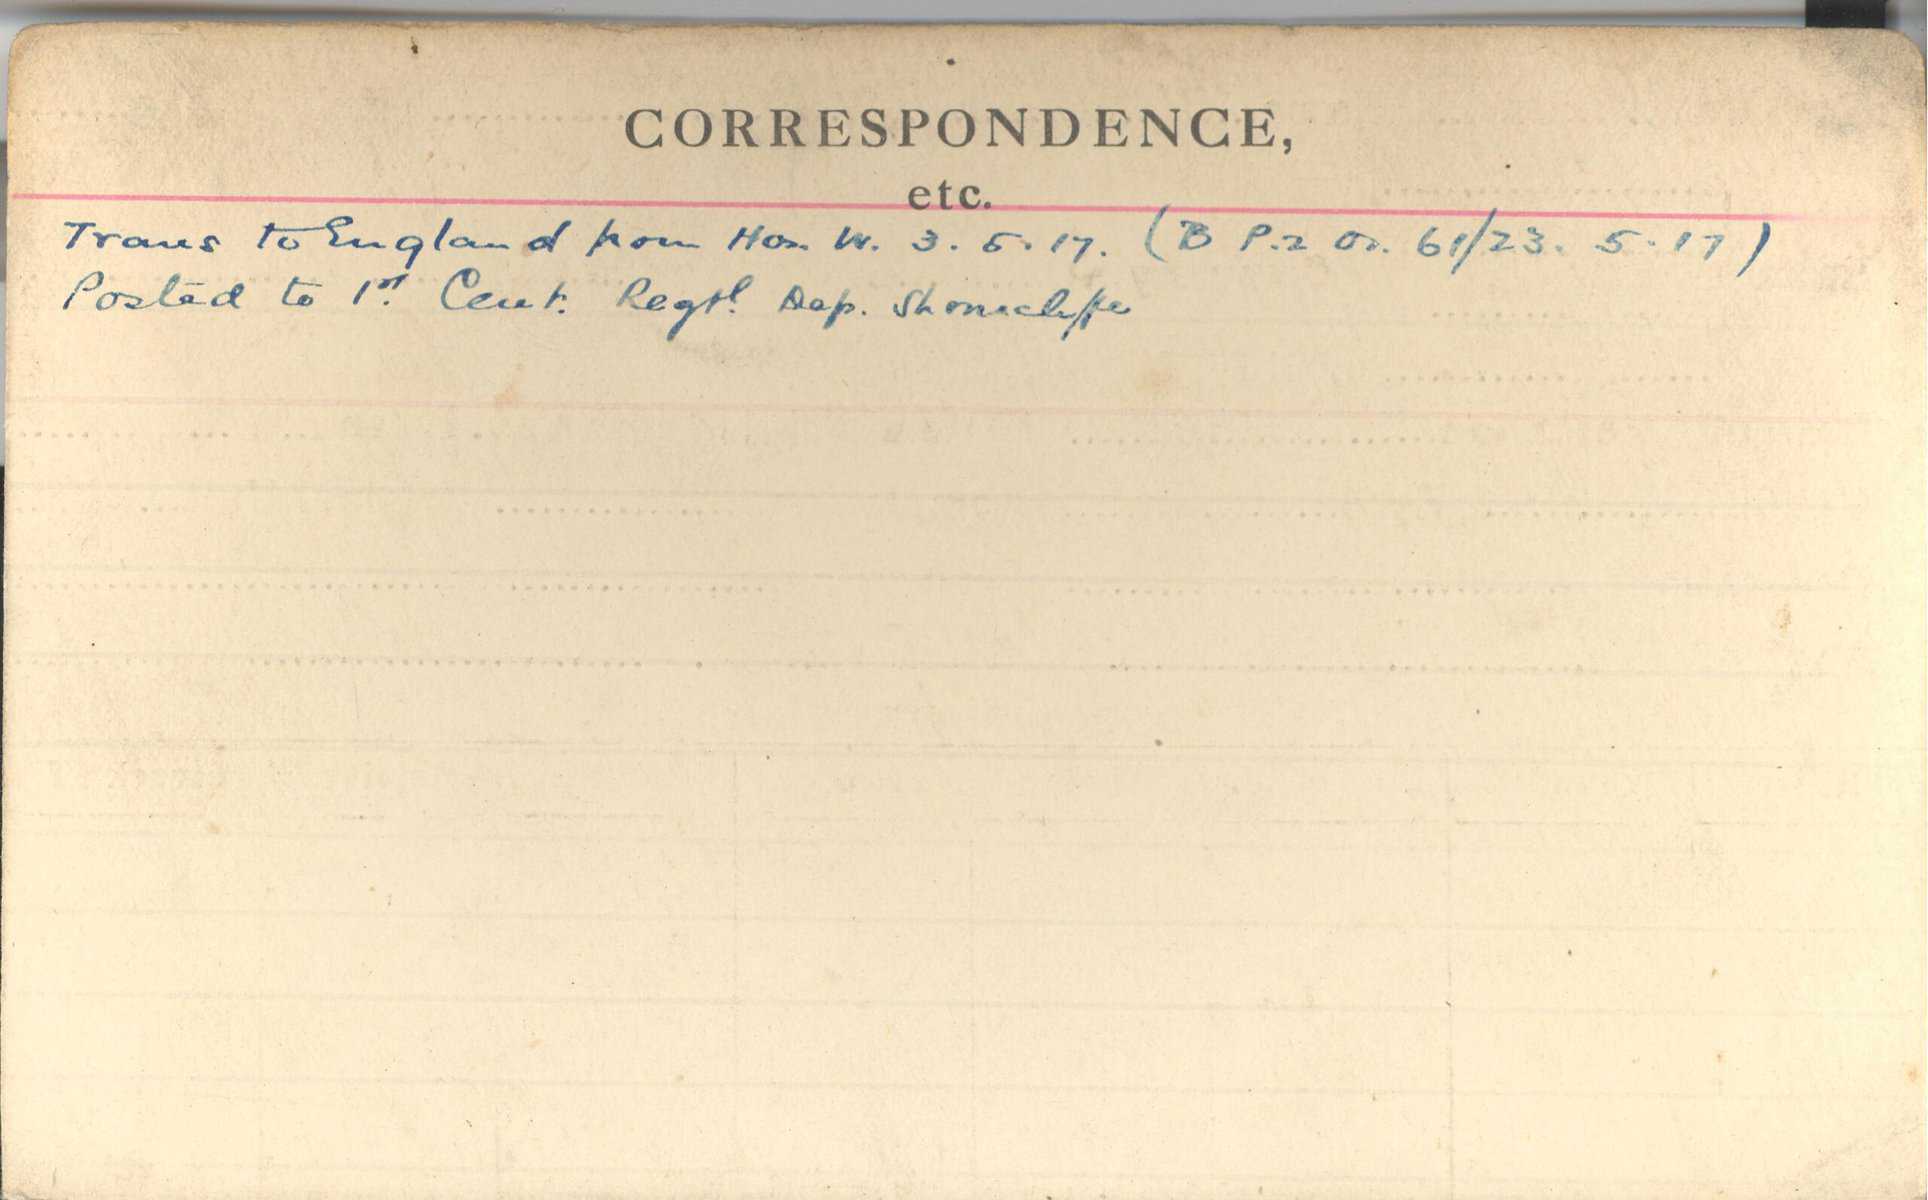 CORRESPONDENCE,
etc.
Trans to England from Hos. W. 3.5.17. (B P.2 Or. 61/23.5.17)
Posted to 1st Cent. Regtl. Dep. Shorncliffe